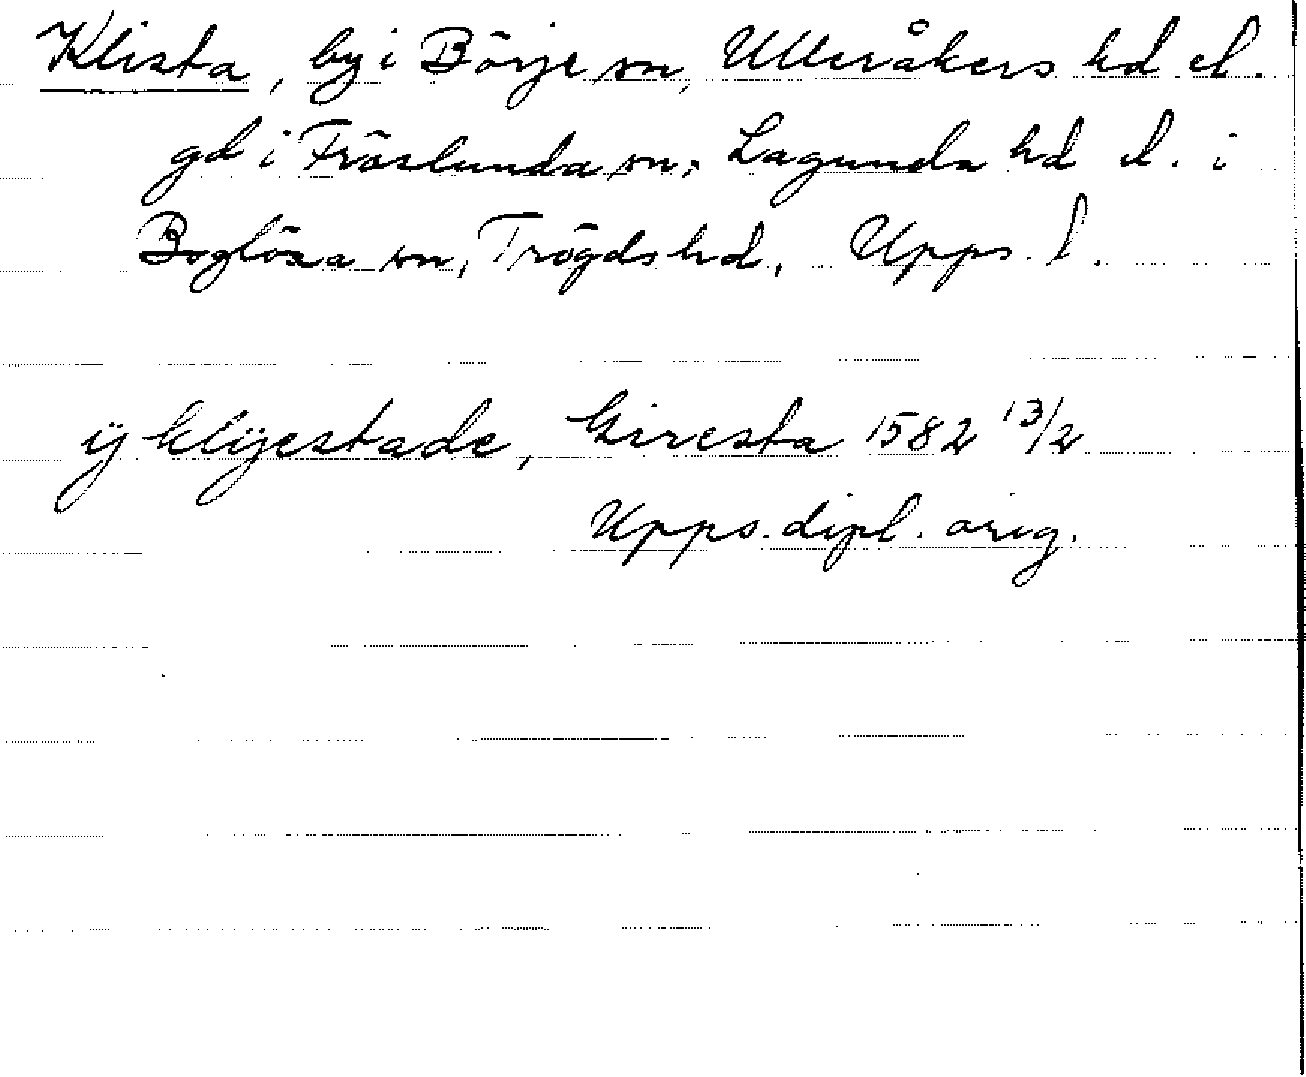 Klista, by i Börje sn, Ulleråkers hd el.
gd i Fröslunda sn, Lagunda hd el. i
Boglösa sn, Trögds hd, Upps. l.
ij klijestade, Giresta 1582 13/2
Upps. dipl. orig.